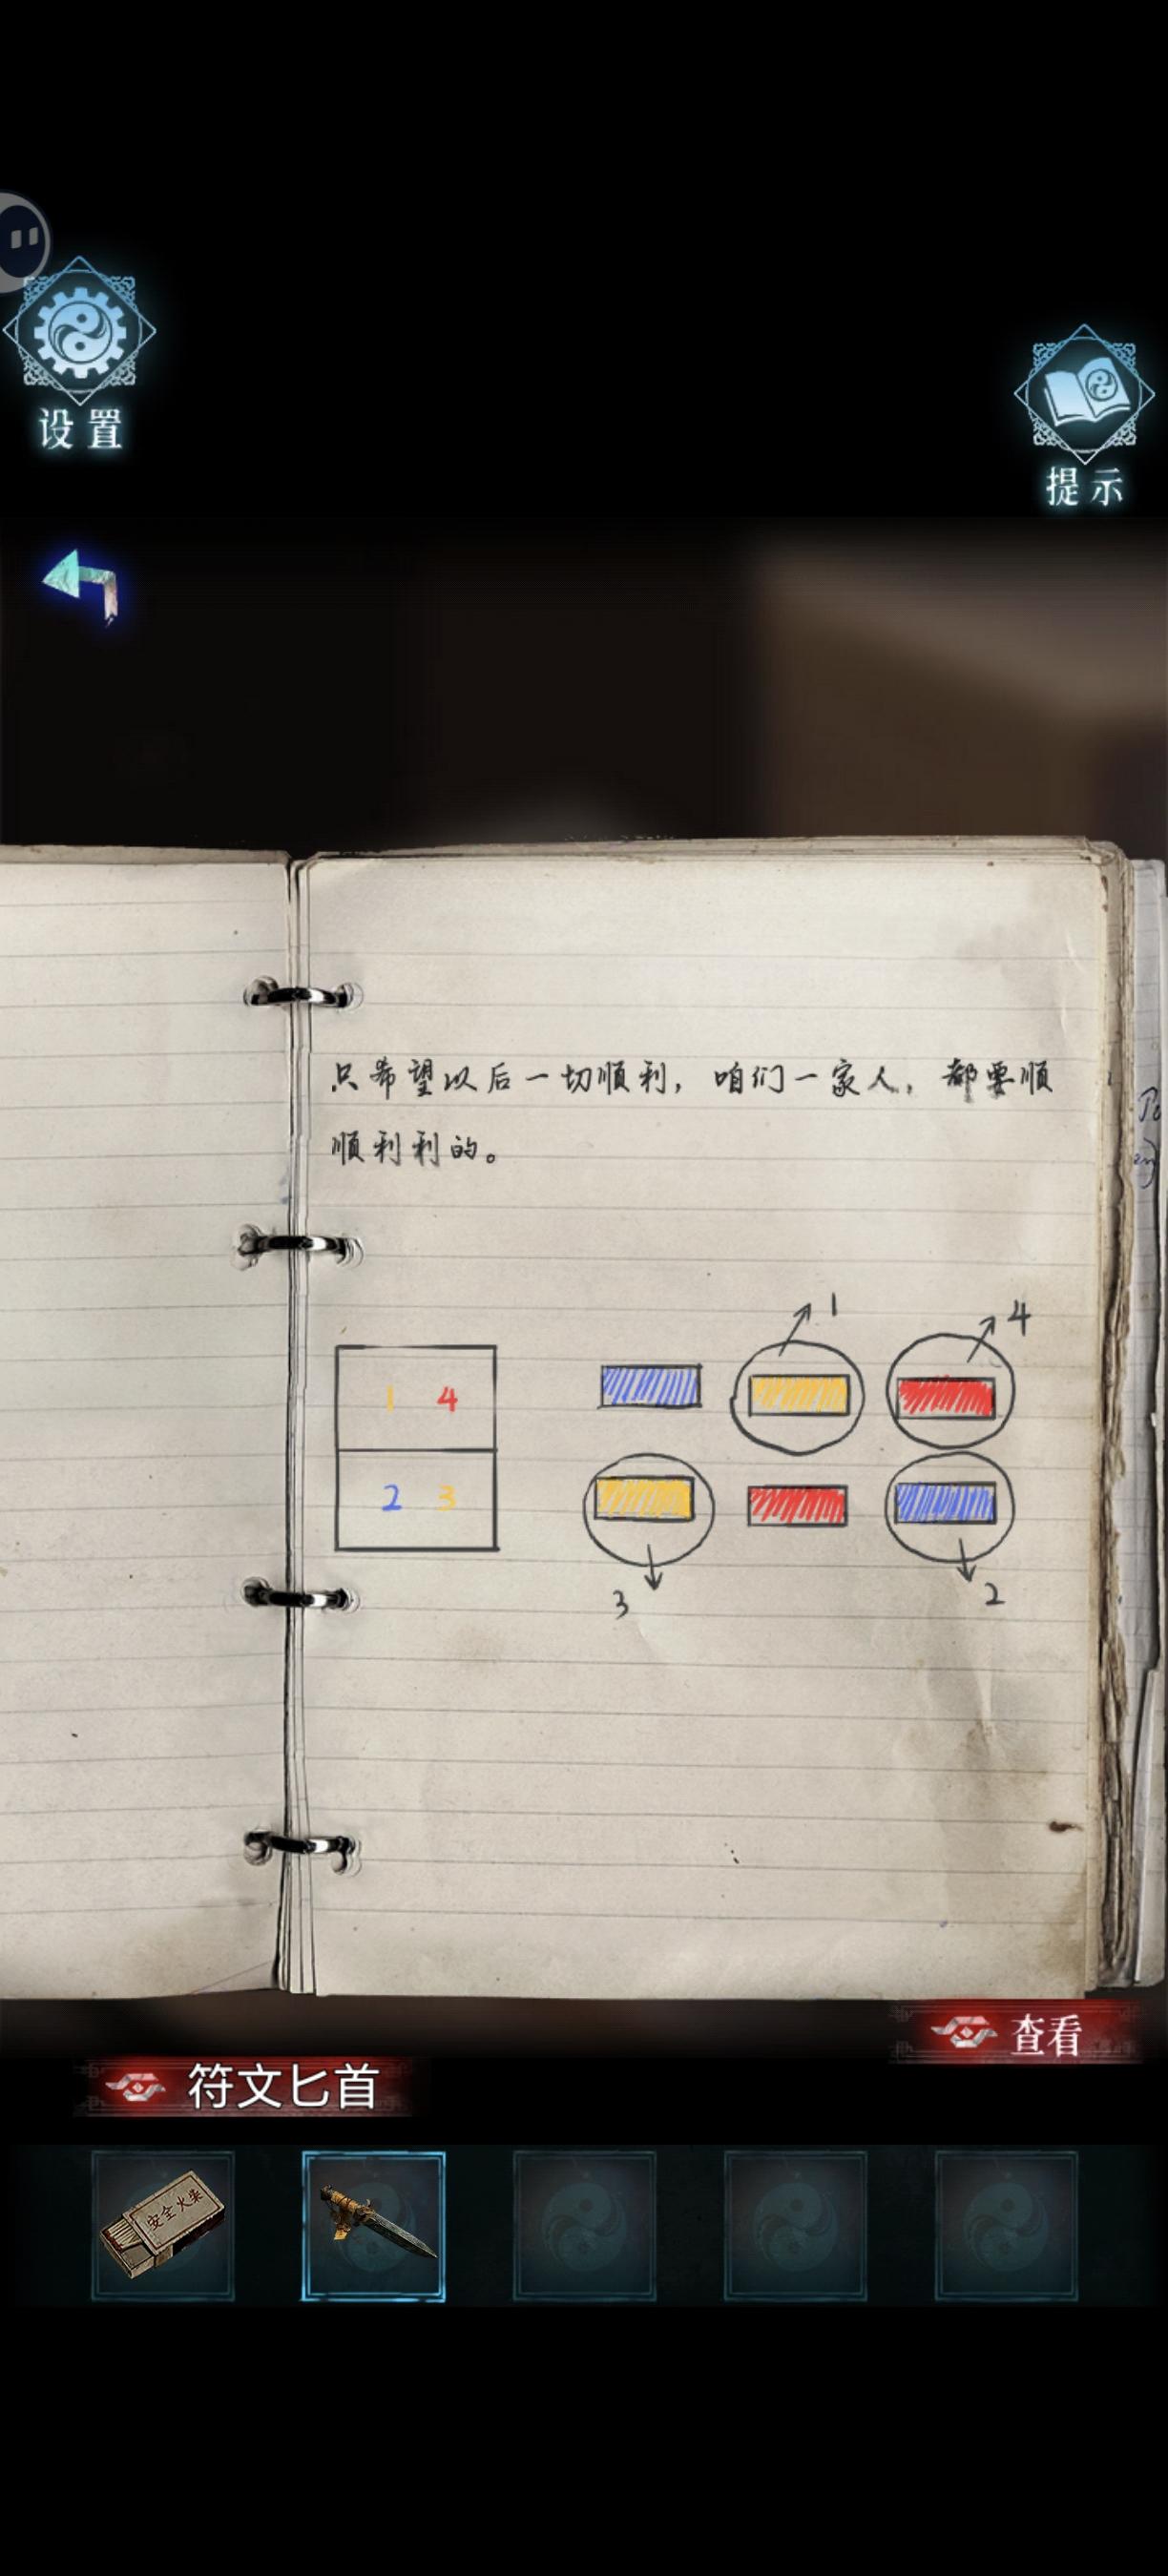 设置
提示
只希望以后一切顺利，咱们一家人，都要顺
顺利利的。
1 4
1 4
2 3
3 2
查看
符文匕首
安全火柴